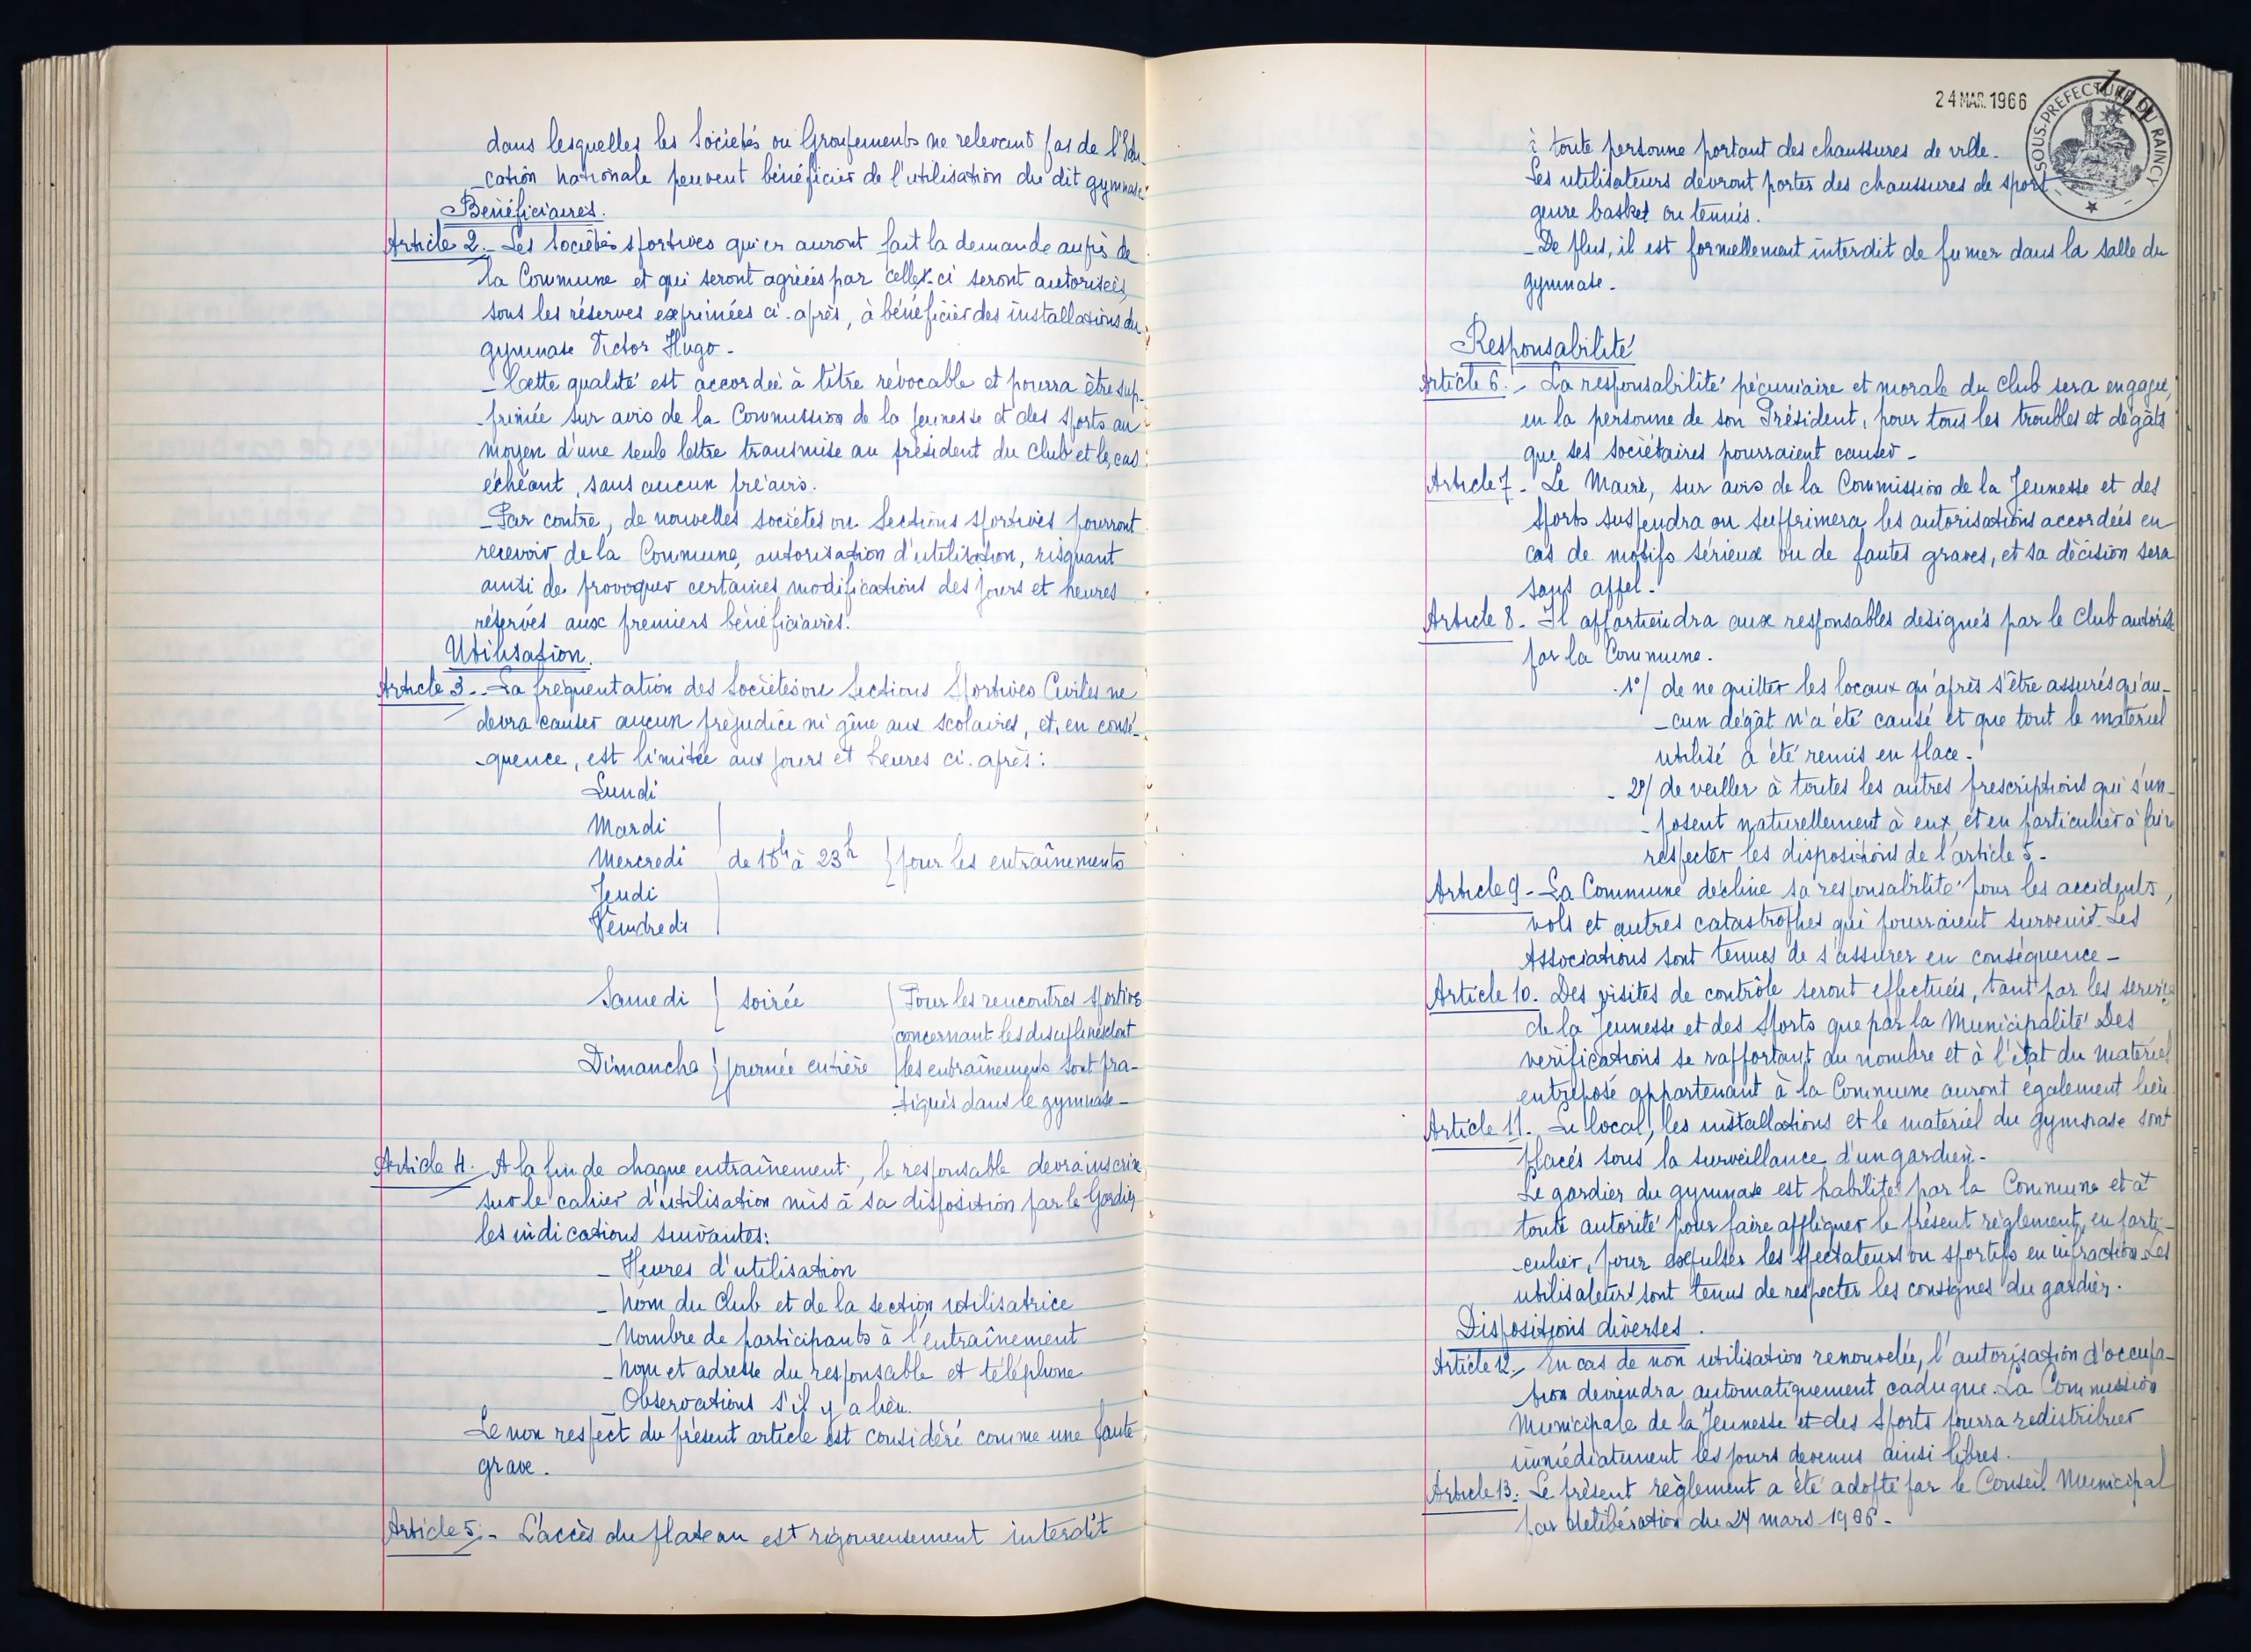 dans lesquelles les Sociétés ou Groupements ne relevant pas de l'Edu-
-cation Nationale peuvent bénéficier de l'utilisation du dit gymnase
Bénéficiaires.
Article 2.- Les Sociétés sportives qui en auront fait la demande auprès de
la Commune et qui seront agréées par celle-ci seront autorisées,
sous les réserves exprimées ci-après, à bénéficier des installations du
gymnase Victor Hugo -
- Cette qualité est accordée à titre révocable et pourra être sup-
-primée sur avis de la Commission de la Jeunesse et des Sports au
moyen d'une seule lettre transmise au président du Club et le cas
échéant, sans aucun préavis.
- Par contre, de nouvelles sociétés ou Sections sportives pourront
recevoir de la Commune, autorisation d'utilisation, risquant
ainsi de provoquer certaines modifications des jours et heures
réservés aux premiers bénéficiaires.
Utilisation.
Article 3.- La fréquentation des Sociétés ou Sections Sportives Civiles ne
devra causer aucun préjudice ni gêne aux scolaires, et, en consé-
-quence, est limitée aux jours et heures ci-après :
Lundi
Mardi
Mercredi de 18h à 23h } pour les entraînements
Jeudi
Vendredi
Samedi } soirée Pour les rencontres sportives
concernant les disciplines dont
Dimanche } journée entière les entraînements sont pra-
-tiqués dans le gymnase -
Article 4.- A la fin de chaque entraînement, le responsable devra inscrire
sur le cahier d'utilisation mis à sa disposition par le Gardien
les indications suivantes:
- Heures d'utilisation
- Nom du Club et de la section utilisatrice
- Nombre de participants à l'entraînement
- Nom et adresse du responsable et téléphone
- Observations s'il y a lieu.
Le non respect du présent article est considéré comme une faute
grave.
Article 5.- L'accès du plateau est rigoureusement interdit
24 MAR. 1966
SOUS-PREFECTURE DU RAINCY
à toute personne portant des chaussures de ville.
Les utilisateurs devront porter des chaussures de sport
genre basket ou tennis.
- De plus, il est formellement interdit de fumer dans la salle du
gymnase -
Responsabilité
Article 6.- La responsabilité pécuniaire et morale du club sera engagée,
en la personne de son Président, pour tous les troubles et dégâts
que ses sociétaires pourraient causer -
Article 7 - Le Maire, sur avis de la Commission de la Jeunesse et des
Sports suspendra ou supprimera les autorisations accordées en
cas de motifs sérieux ou de fautes graves, et sa décision sera
sans appel -
Article 8 - Il appartiendra aux responsables désignés par le Club autorisé
par la Commune.
- 1°/ de ne quitter les locaux qu'après s'être assurés qu'au-
-cun dégât n'a été causé et que tout le matériel
utilisé a été remis en place -
- 2°/ de veiller à toutes les autres prescriptions qui s'im-
-posent naturellement à eux, et en particulier à faire
respecter les dispositions de l'article 5 -
Article 9 - La Commune décline sa responsabilité pour les accidents,
vols et autres catastrophes qui pourraient survenir. Les
Associations sont tenues de s'assurer en conséquence -
Article 10. Des visites de contrôle seront effectuées, tant par les services
de la Jeunesse et des Sports que par la Municipalité. Des
vérifications se rapportant au nombre et à l'état du matériel
entreposé appartenant à la Commune auront également lieu
Article 11. Le local, les installations et le matériel du gymnase sont
placés sous la surveillance d'un gardien -
Le gardien du gymnase est habilité par la Commune et a
toute autorité pour faire appliquer le présent règlement, en parti-
-culier, pour expulser les spectateurs ou sportifs en infraction. Les
utilisateurs sont tenus de respecter les consignes du gardien.
Dispositions diverses.
Article 12.- En cas de non utilisation renouvelée, l'autorisation d'occupa-
tion deviendra automatiquement caduque. La Commission
Municipale de la Jeunesse et des Sports pourra redistribuer
immédiatement les jours devenus ainsi libres.
Article 13.- Le présent règlement a été adopté par le Conseil Municipal
par délibération du 24 mars 1966 -